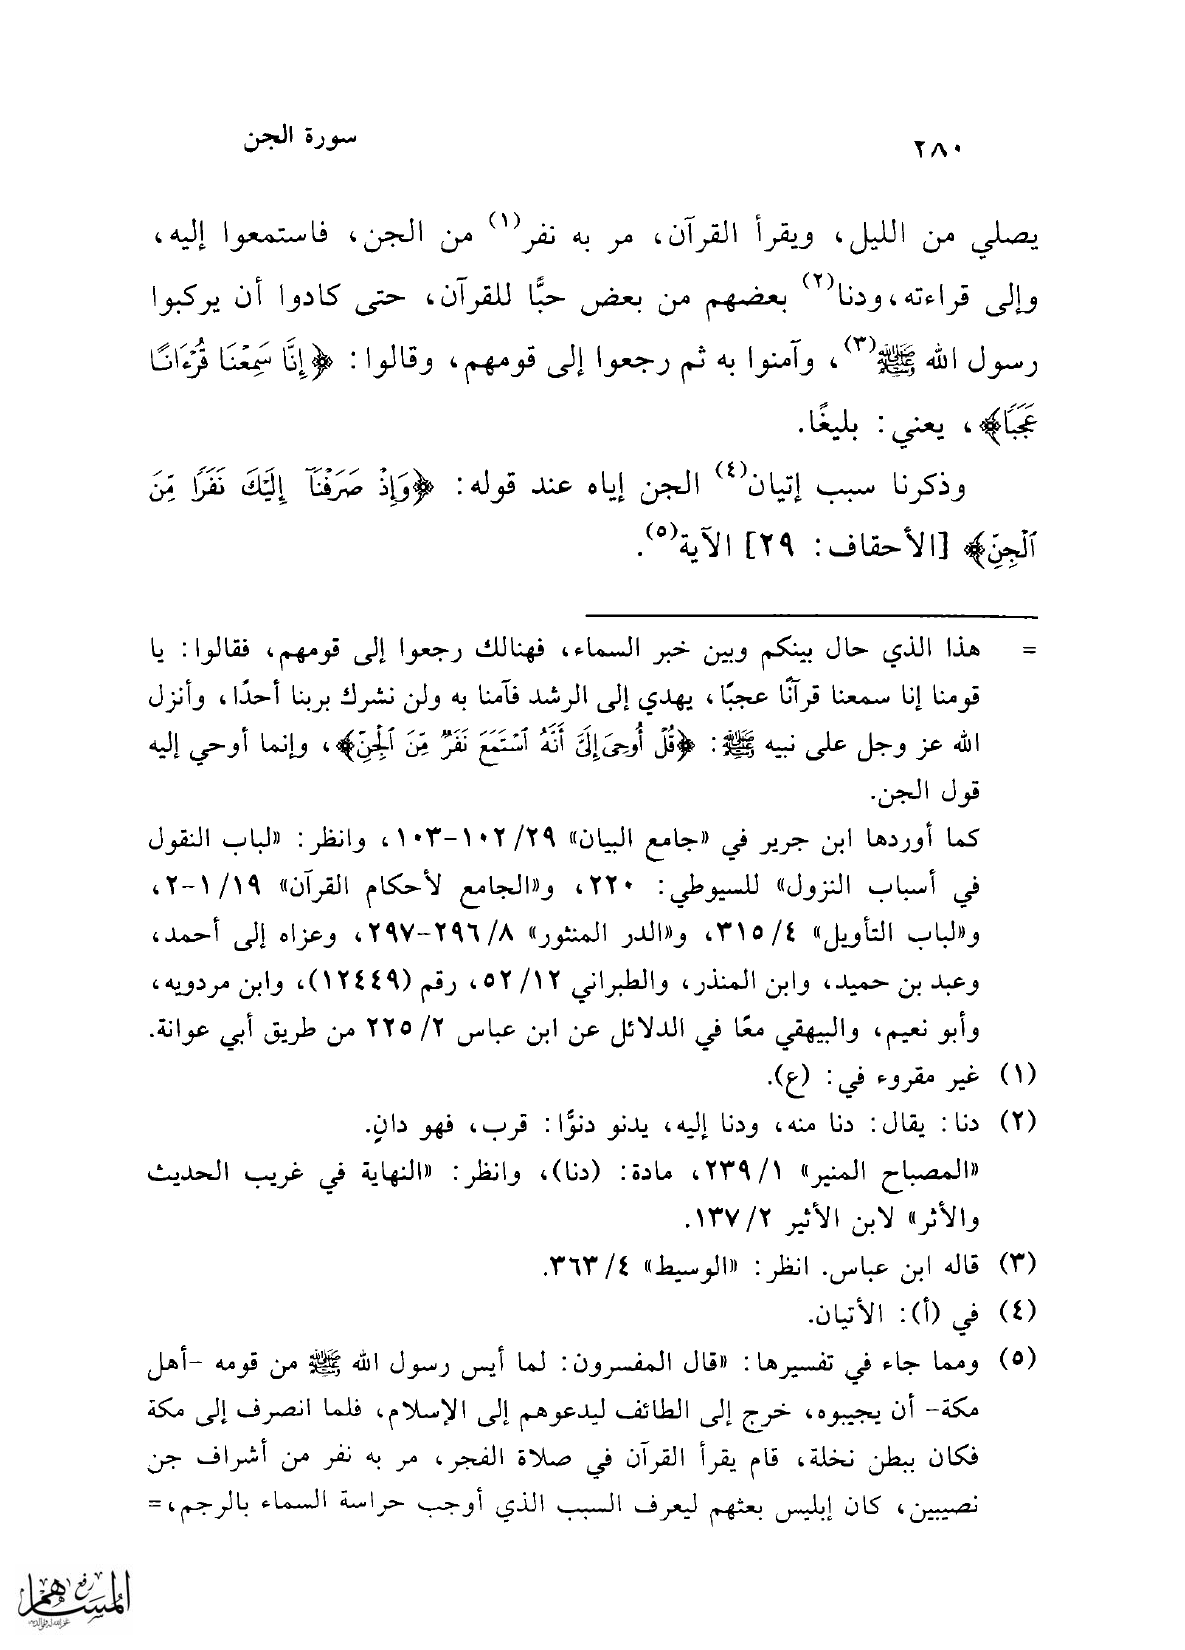 ٢٨٠
سورة الجن
يصلي من الليل، ويقرأ القرآن، مر به نفر(١) من الجن، فاستمعوا إليه،
وإلى قراءته، ودنا(٢) بعضهم من بعض حبًّا للقرآن، حتى كادوا أن يركبوا
رسول الله ﷺ(٣)، وآمنوا به ثم رجعوا إلى قومهم، وقالوا: ﴿إِنَّا سَمِعْنَا قُرْءَانًا
عَجَبًا﴾، يعني: بليغًا.
وذكرنا سبب إتيان(٤) الجن إياه عند قوله: ﴿وَإِذْ صَرَفْنَآ إِلَيْكَ نَفَرًا مِّنَ
ٱلْجِنِّ﴾ [الأحقاف: ٢٩] الآية(٥).
= هذا الذي حال بينكم وبين خبر السماء، فهنالك رجعوا إلى قومهم، فقالوا: يا
قومنا إنا سمعنا قرآنًا عجبًا، يهدي إلى الرشد فآمنا به ولن نشرك بربنا أحدًا، وأنزل
الله عز وجل على نبيه ﷺ: ﴿قُلْ أُوحِىَ إِلَىَّ أَنَّهُ ٱسْتَمَعَ نَفَرٌ مِّنَ ٱلْجِنِّ﴾، وإنما أوحي إليه
قول الجن.
كما أوردها ابن جرير في «جامع البيان» ٢٩/ ١٠٢-١٠٣، وانظر: «لباب النقول
في أسباب النزول» للسيوطي: ٢٢٠، و«الجامع لأحكام القرآن» ١٩/ ١-٢،
و«لباب التأويل» ٤/ ٣١٥، و«الدر المنثور» ٨/ ٢٩٦-٢٩٧، وعزاه إلى أحمد،
وعبد بن حميد، وابن المنذر، والطبراني ١٢/ ٥٢، رقم (١٢٤٤٩)، وابن مردويه،
وأبو نعيم، والبيهقي معًا في الدلائل عن ابن عباس ٢/ ٢٢٥ من طريق أبي عوانة.
(١) غير مقروء في: (ع).
(٢) دنا: يقال: دنا منه، ودنا إليه، يدنو دنوًّا: قرب، فهو دانٍ.
«المصباح المنير» ١/ ٢٣٩، مادة: (دنا)، وانظر: «النهاية في غريب الحديث
والأثر» لابن الأثير ٢/ ١٣٧.
(٣) قاله ابن عباس. انظر: «الوسيط» ٤/ ٣٦٣.
(٤) في (أ): الأتيان.
(٥) ومما جاء في تفسيرها: «قال المفسرون: لما أيس رسول الله ﷺ من قومه -أهل
مكة- أن يجيبوه، خرج إلى الطائف ليدعوهم إلى الإسلام، فلما انصرف إلى مكة
فكان ببطن نخلة، قام يقرأ القرآن في صلاة الفجر، مر به نفر من أشراف جن
نصيبين، كان إبليس بعثهم ليعرف السبب الذي أوجب حراسة السماء بالرجم،=
رفع
المساهم